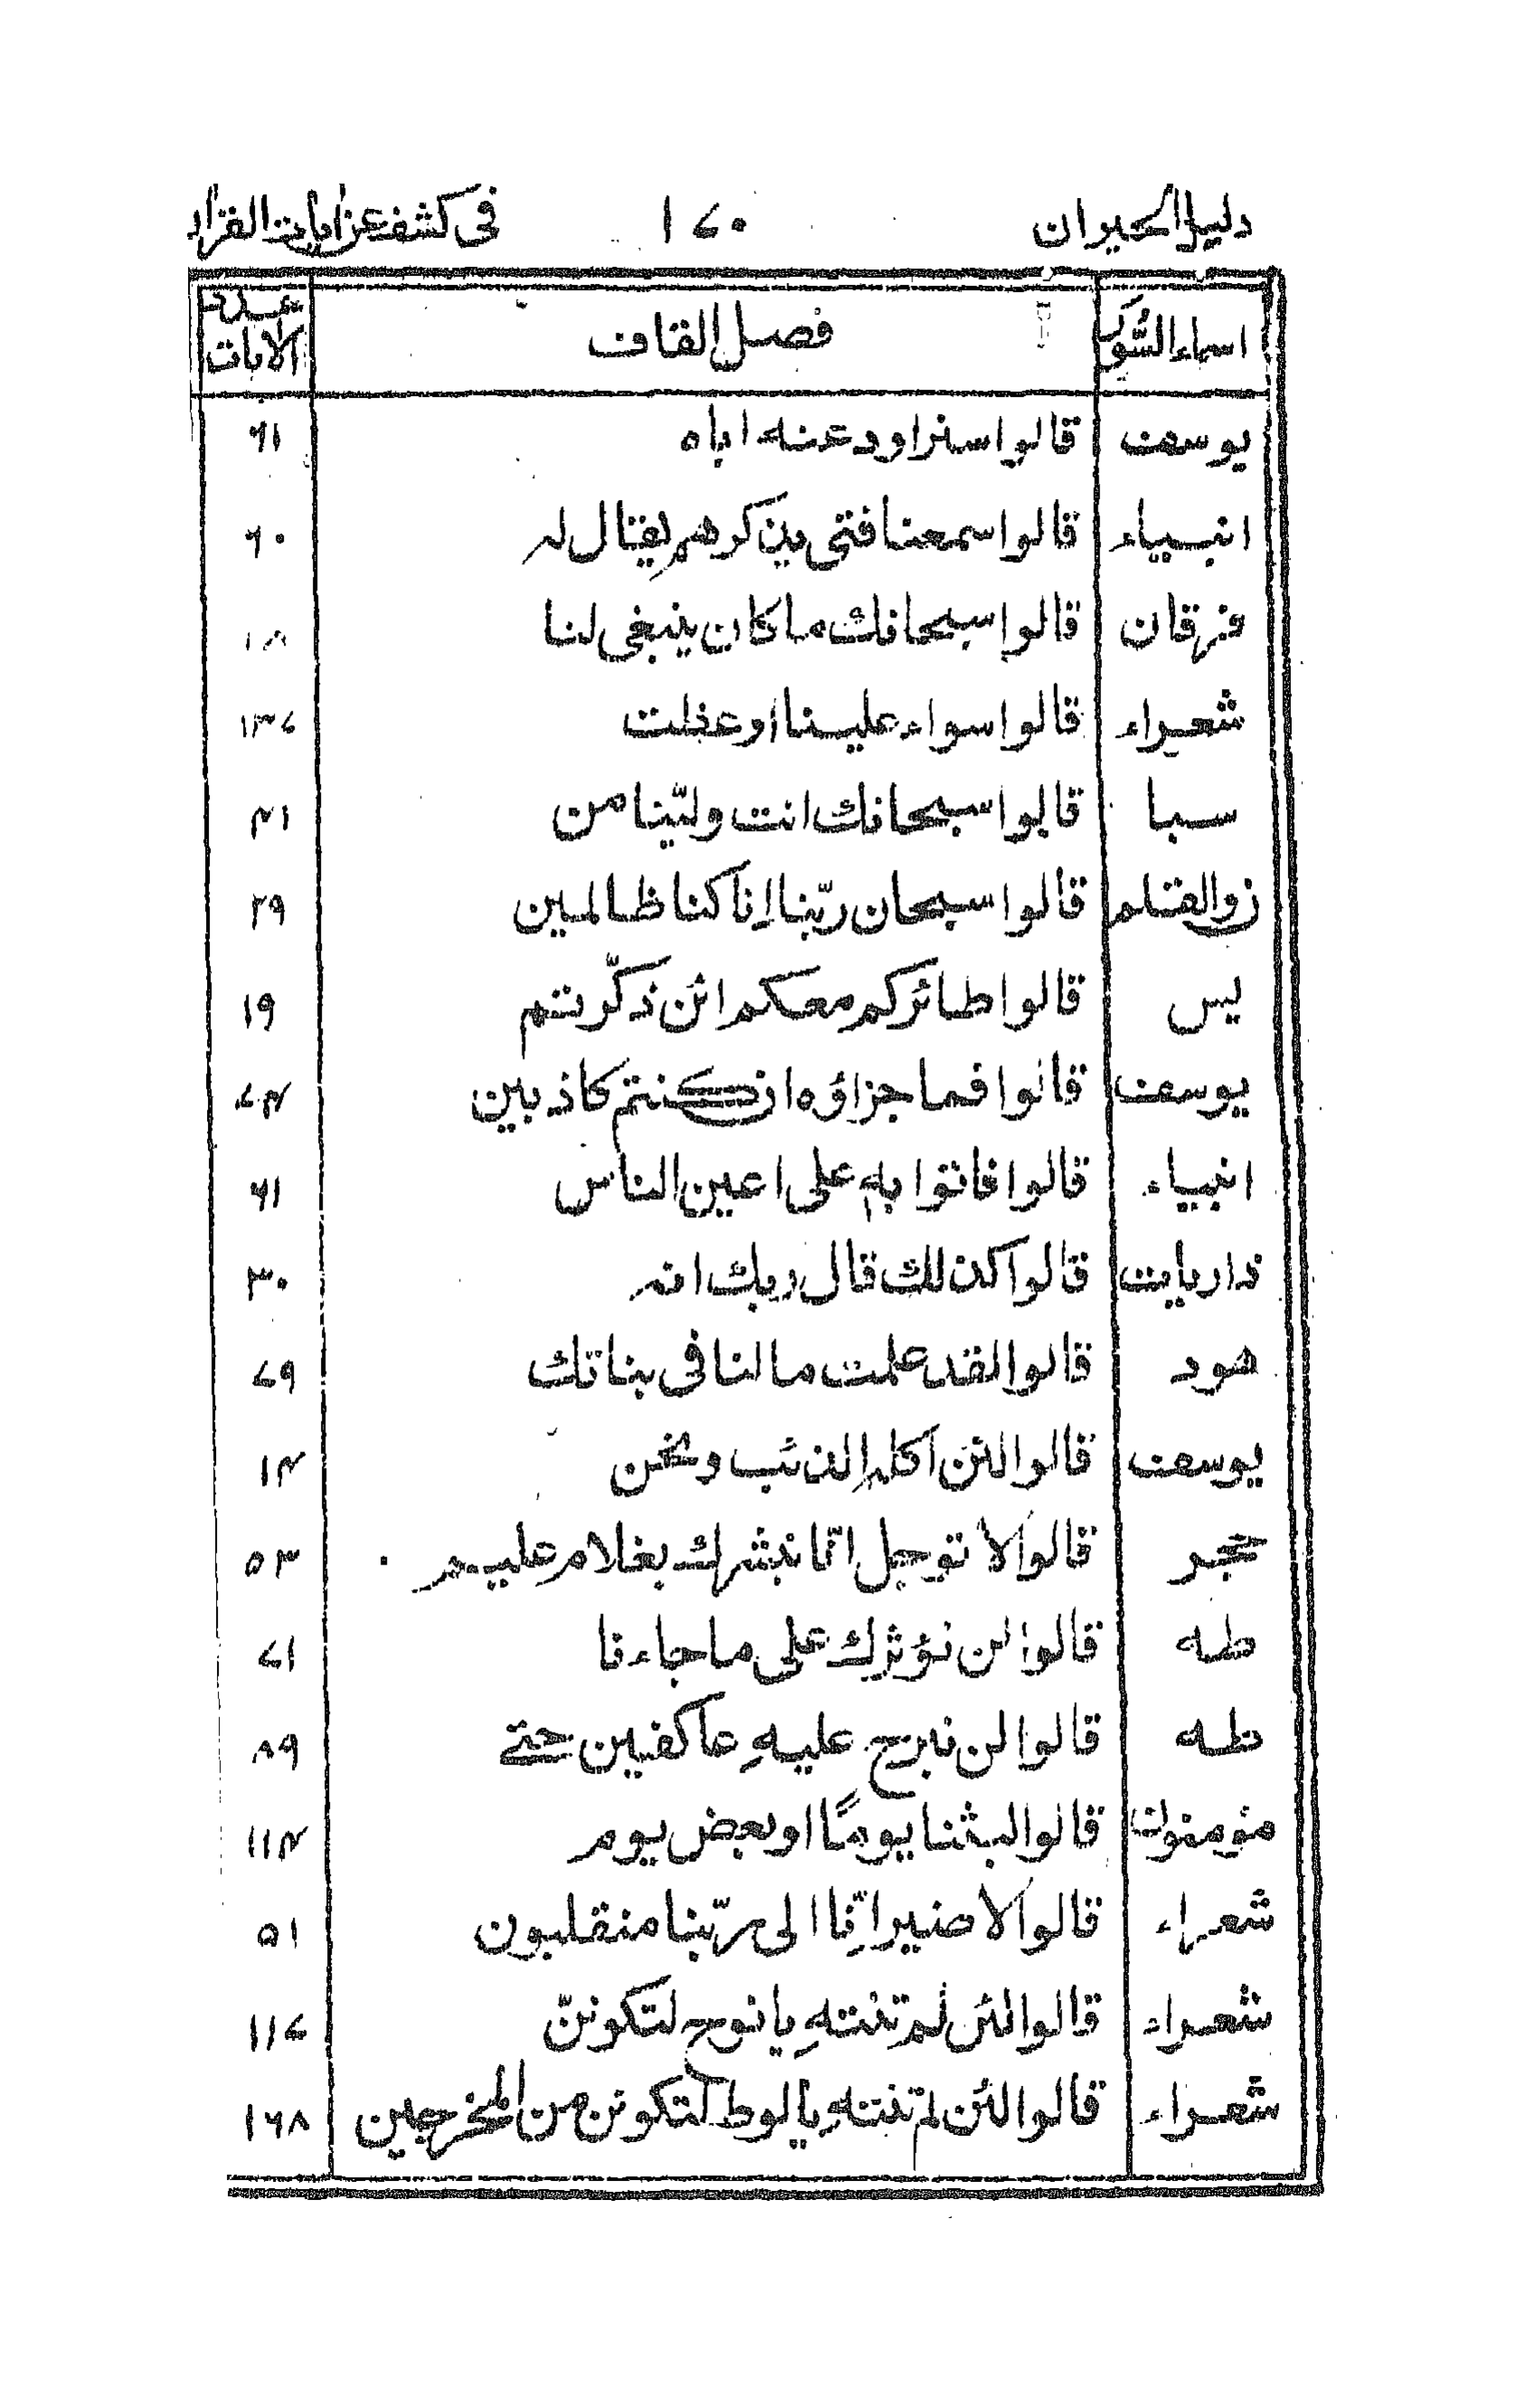 دليل الحيران ١٧٠ في كشف عن ايات القران
اسماء السُّور فصل القاف عدد الآيات
يوسف قالوا سنراود عنه اباه ٦١
انبياء قالوا سمعنا فتى يذكرهم يقال له ٦٠
فرقان قالوا سبحانك ما كان ينبغي لنا ١٨
شعراء قالوا سواء علينا اوعظت ١٣٧
سبا قالوا سبحانك انت وليّنا من ٤١
ن والقلم قالوا سبحان ربّنا اِنا كنا ظالمين ٢٩
يس قالوا طائركم معكم ائن ذكّرتتم ١٩
يوسف قالوا فما جزاؤه ان كنتم كاذبين ٧٤
انبياء قالوا فاتوا بهِ على اعين الناس ٦١
ذاريات قالوا كذلك قال ربك انه ٣٠
هود قالوا لقد علمت ما لنا في بناتك ٧٩
يوسف قالوا لئن اكله الذئب ونحن ١٤
حجر قالوا لا توجل انّا نبشرك بغلام عليم ٥٣
طه قالوا لن نؤثرك على ما جاءنا ٧١
طه قالوا لن نبرح عليهِ عاكفين حتے ٨٩
مؤمنون قالوا لبثنا يومًا او بعض يوم ١١٤
شعراء قالوا لا ضير اِنّا الى ربّنا منقلبون ٥١
شعراء قالوا لئن لم تنتهِ يا نوح لتكوننّ ١١٧
شعراء قالوا لئن لم تنتهِ يا لوط لتكونن من المخرجين ١٦٨